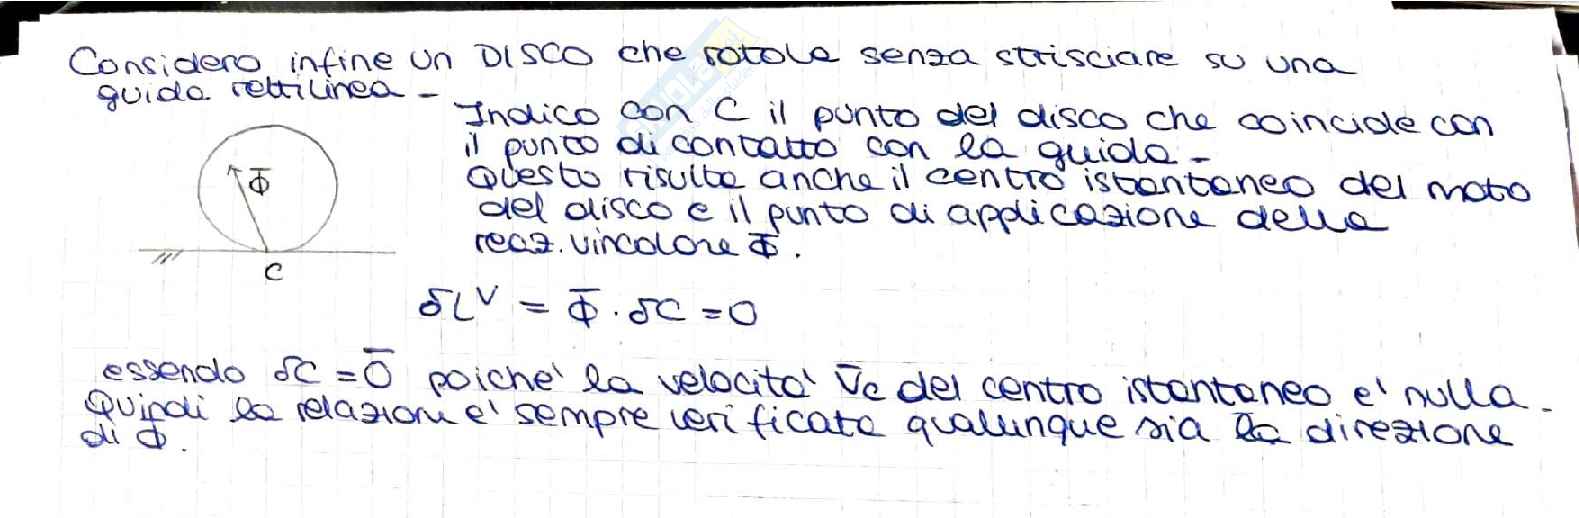 Considero infine un DISCO che rotola senza strisciare su una
guida rettilinea -
Indico con C il punto del disco che coincide con
il punto di contatto con la guida -
Questo risulta anche il centro istantaneo del moto
del disco e il punto di applicazione della
reaz. vincolare Φ̄.
Φ̄
C
δLᵛ = Φ̄ · δC = 0
essendo δC = 0̄ poiche' la velocita' v̄c del centro istantaneo e' nulla -
Quindi la relazione e' sempre verificata qualunque sia la direzione
di Φ.